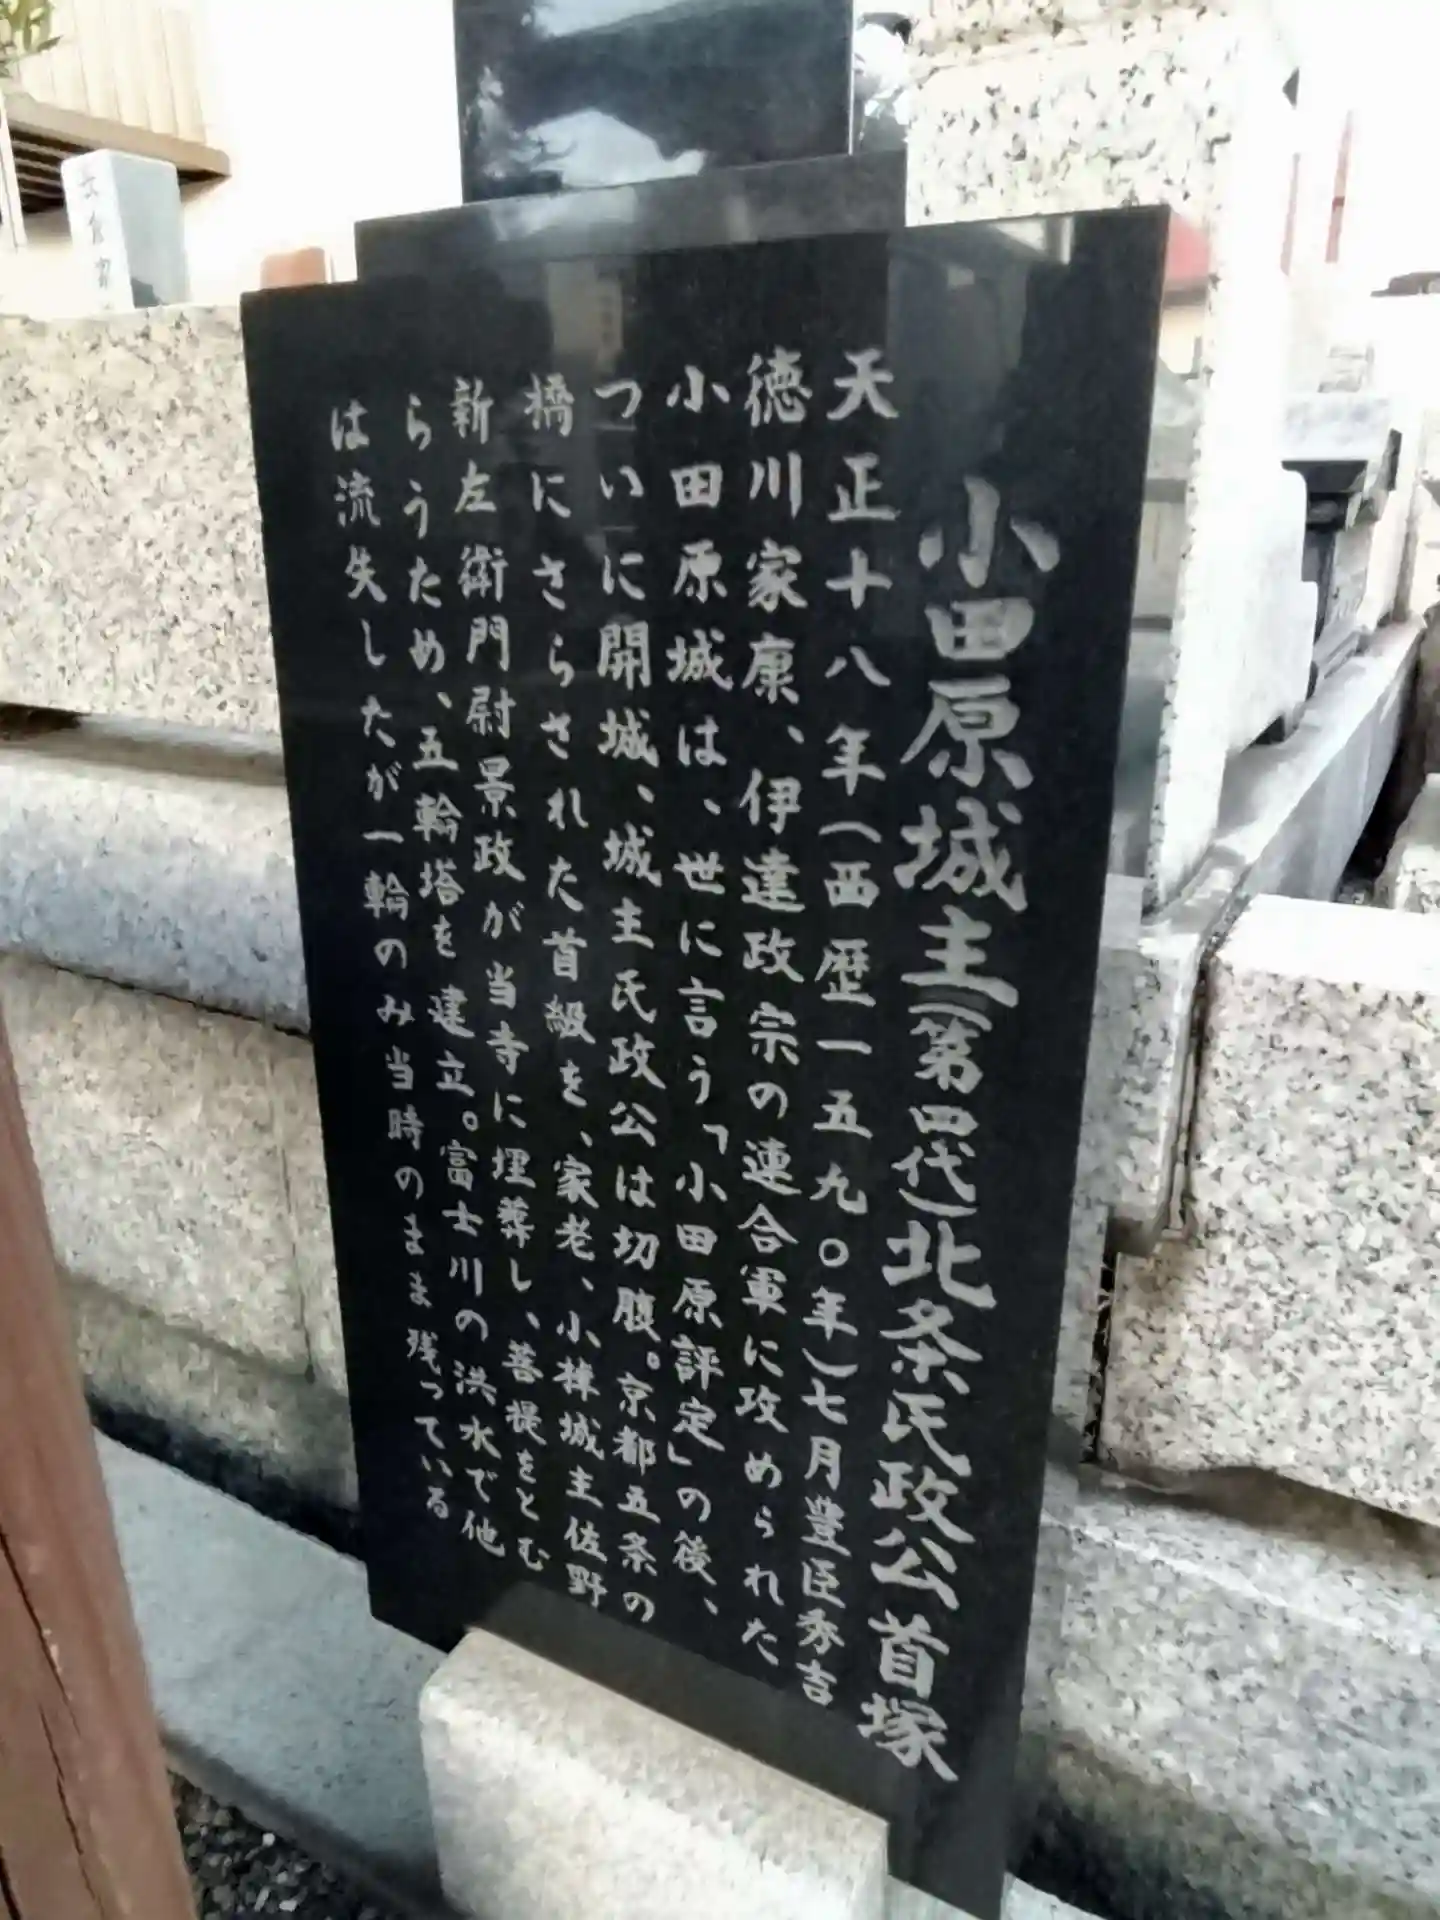 小田原城主(第四代)北条氏政公首塚
天正十八年(西歴一五九〇年)七月豊臣秀吉
徳川家康、伊達政宗の連合軍に攻められた
小田原城は、世に言う「小田原評定」の後、
ついに開城、城主氏政公は切腹。京都五条の
橋にさらされた首級を、家老、小棹城主佐野
新左衛門尉景政が当寺に埋葬し、菩提をとむ
らうため、五輪塔を建立。富士川の洪水で他
は流失したが一輪のみ当時のまま残っている